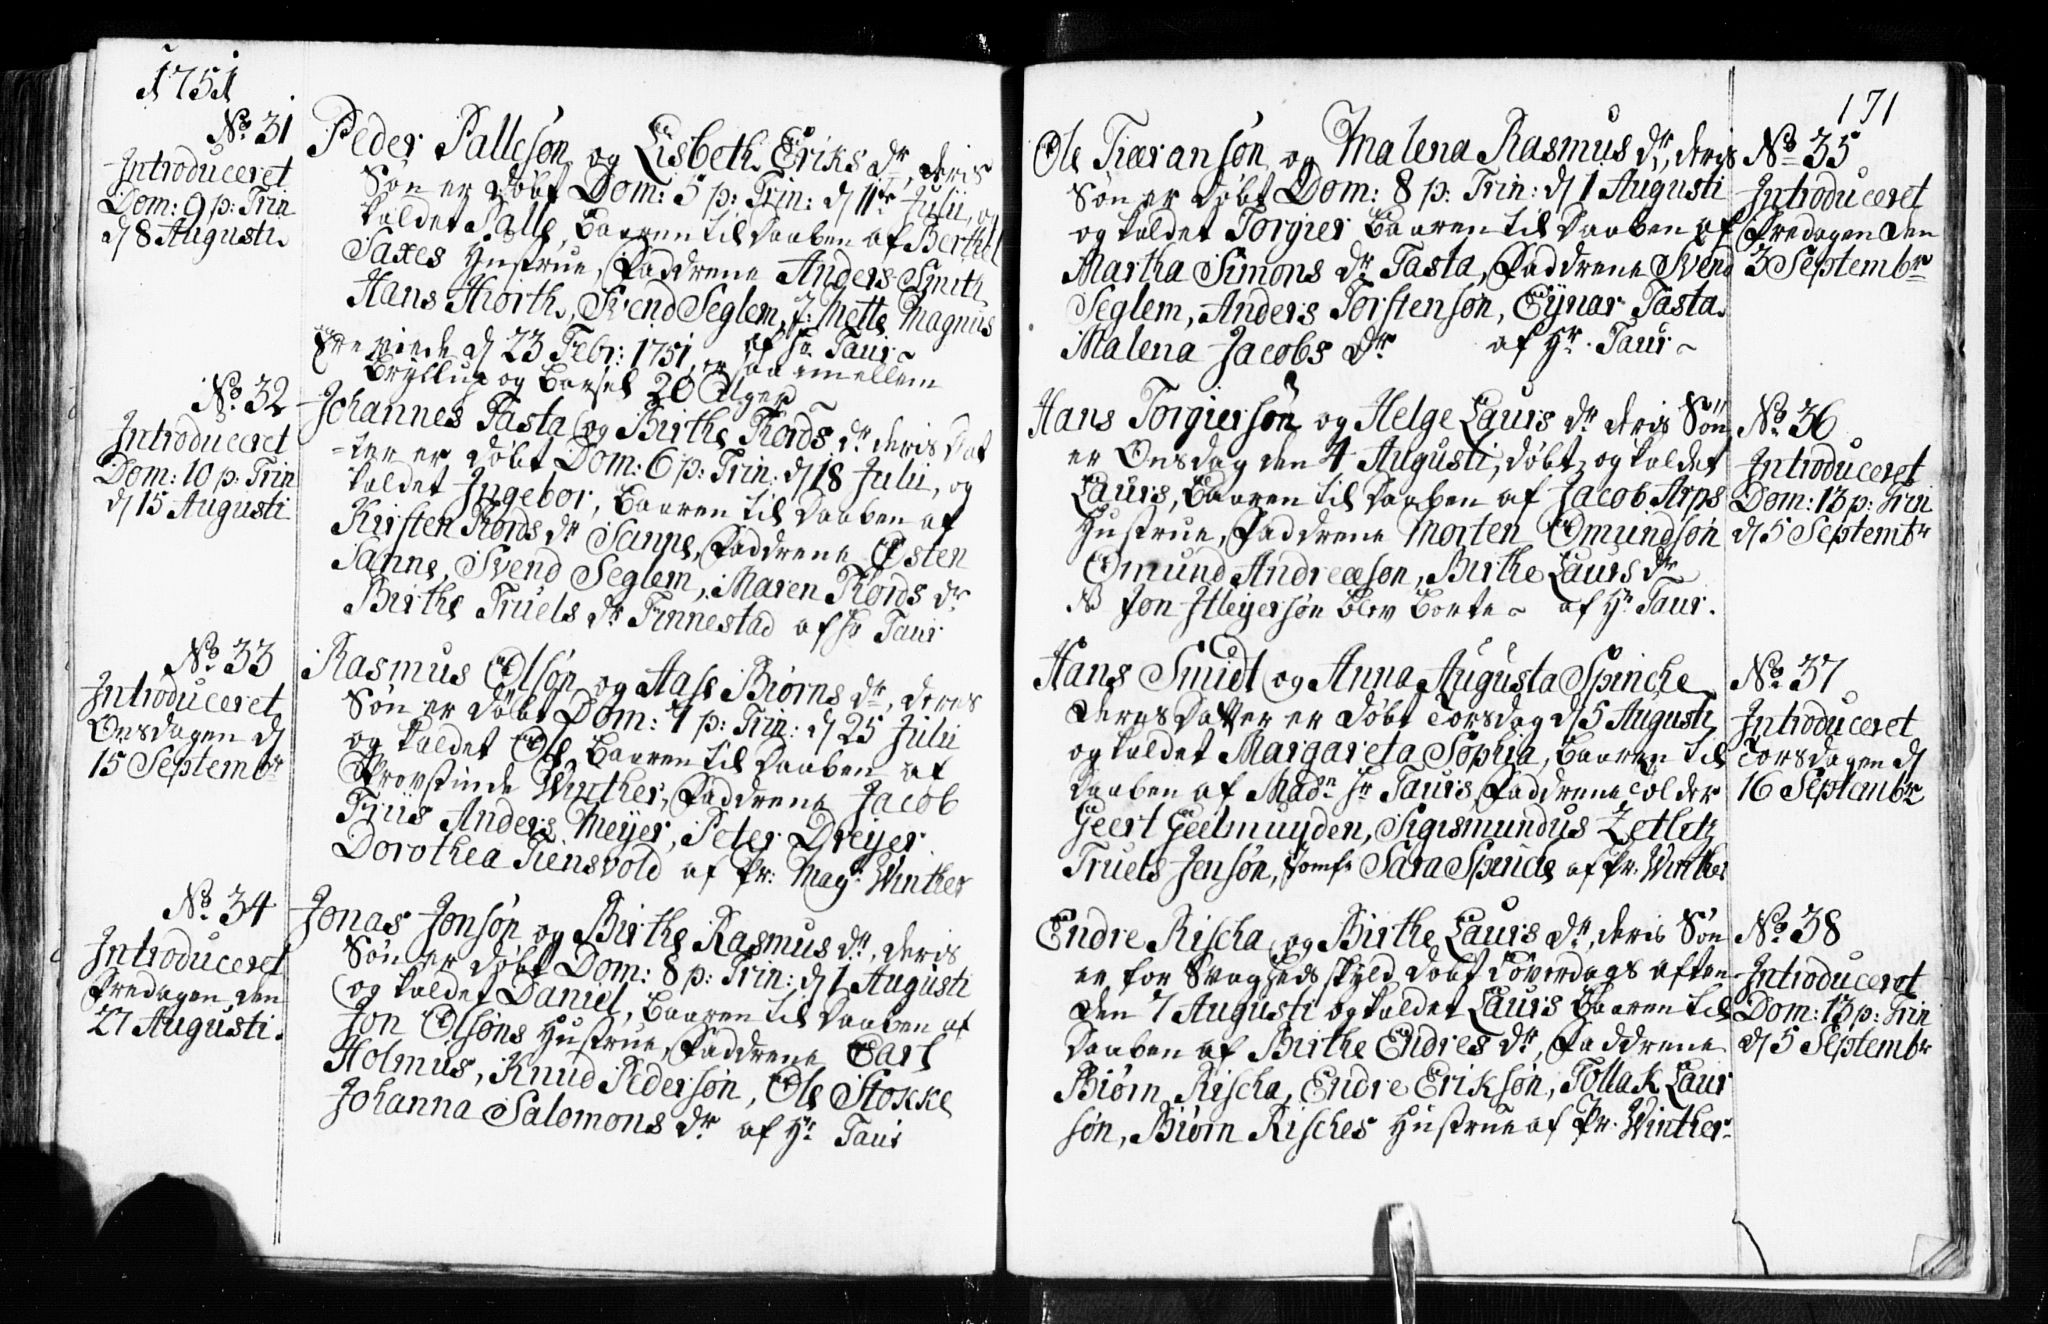 1751
No. 31
Introduceret
Dom: 9 p: Trin
d 8 Augusti.
Peder Pallesøn og Lisbeth Eriks dr, deris
Søn er døbt Dom: 5 p: Trin: d 11te Julii, og
kaldet Palle, baaren til Daaben af Berthel
Saxes Hustrue, Faddrene Anders Smith
Hans Hiorth, Svend Seglem, J: Mette Magnus
af Hr Taur
viede d 23 Febr: 1751, er saa imellem
Bryllup og Barsel 20 Uger
No. 32
Introduceret
Dom: 10 p: Trin
d 15 Augusti
Johannes Tasta og Birthe Thords dr deris Dat
-ter er døbt Dom: 6 p: Trin: d 18 Julii, og
kaldet Ingebor, baaren til Daaben af
Kirsten Thords dr Sanne, Faddrene Østen
Sanne, Svend Seglem, Maren Thords dr
Birthe Truels dr Finnestad af Hr Taur
No. 33
Introduceret
Onsdagen d
15 Septembr
Rasmus Olsøn og Aase Biørns dr, deres
Søn er døbt Dom: 7 p: Trin: d 25 Julii
og kaldet Ole, baaren til Daaben af
Provstinde Winther, Faddrene Jacob
Friis Anders Meyer, Peter Dreyer
Dorothea Tiensvold af Pr: Magr Winther
No. 34
Introduceret
Fredagen den
27 Augusti.
Jonas Jonsøn og Birthe Rasmus dr, deris
Søn er døbt Dom: 8 p: Trin: d 1 Augusti
og kaldet Daniel, baaren til Daaben af
Jon Olsøns Hustrue, Faddrene Carl
Holmius, Knud Pedersøn, Ole Stokke
Johanna Salomons dr af Hr Taur
171
Ole Tiæransøn og Malena Rasmus dr, deris
Søn er døbt Dom: 8 p: Trin: d 1 Augusti
og kaldet Torgier baaren til Daaben af
Martha Simons dr Tasta, Faddrene Svend
Seglem, Anders Torstensøn, Eÿnar Tasta.
Malena Jacobs dr af Hr. Taur
No. 35
Introduceret
Fredagen den
3 Septembr
Hans Torgiersøn og Helge Laurs dr deris Søn
er Onsdag den 4 Augusti, døbt og kaldet
Laurs, baaren til Daaben af Jacob Arps
Hustrue, Faddrene Morten Omundsøn
Omund Andreæson, Birthe Laurs dr
NB Jon Heyersøn blev borte af Hr Taur.
No. 36
Introduceret
Dom: 13 p: Trin
d 5 Septembr
Hans Smidt og Anna Augusta Spincke
deres Datter er døbt Torsdag d 5 Augusti
og kaldet Margareta Sophia, baaren til
Daaben af Madn Hr Taurs Faddrene Tolder
Geert Geelmuyden, Sigismundus Zetlitz
Truels Jensøn, Jomfr Sara Spincke af Pr: Winther
No. 37
Introduceret
Torsdagen d
16 Septembr
Endre Rischa og Birthe Laurs dr, deris Søn
er for Svagheds skyld døbt Løverdags aften
den 7 Augusti og kaldet Laurs baaren til
Daaben af Birthe Endres dr, Faddrene
Biørn Rischa, Endre Eriksøn, Tollak Laur
søn, Biørn Risches Hustrue af Pr. Winther
No. 38
Introduceret
Dom: 13 p: Trin
d 5 Septembr